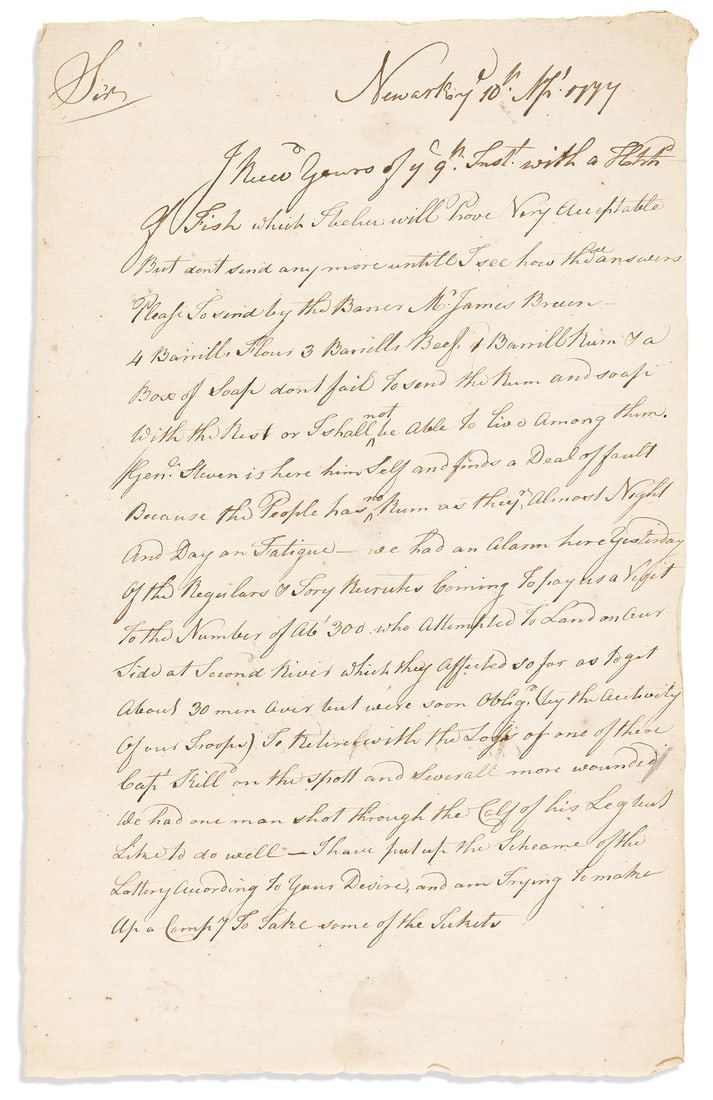 Sir
Newark ye 10th Apl 1777
I Reced Yours of ye 9th Inst. with a Hhd
of Fish which I beleve will Prove Very Acceptable
But dont send any more untill I see how these answers
Please To send by the Barer Mr James Bruen —
4 Barrills Flour 3 Barrills Beef. 1 Barrill Rum & a
Box of Soap dont fail To send the Rum and soap
With the Rest or I shall not be Able to live Among them.
Genl Steven is here him Self and finds a Deal of fault
Because the People has no Rum as they'r Almost Night
And Day on Fatigue — we had an Alarm here Yesterday
Of the Regulars & Tory Recrutes Coming To pay us a Visit
To the Number of Abt 300 who Attempted To Land on Our
Side at Second River which they Affected so far as to get
About 30 men Over but were soon Obligd (by the Activity
Of our Troops) To Retire with the Loss of one of there
Capt Killd on the spott and Severall more wounded
We had one man shot through the Calf of his Leg but
Like to do well — I have put up the Scheame of the
Lottery Acording To Your Desire, and am Trying To make
Up a Compy To Take some of the Tickets